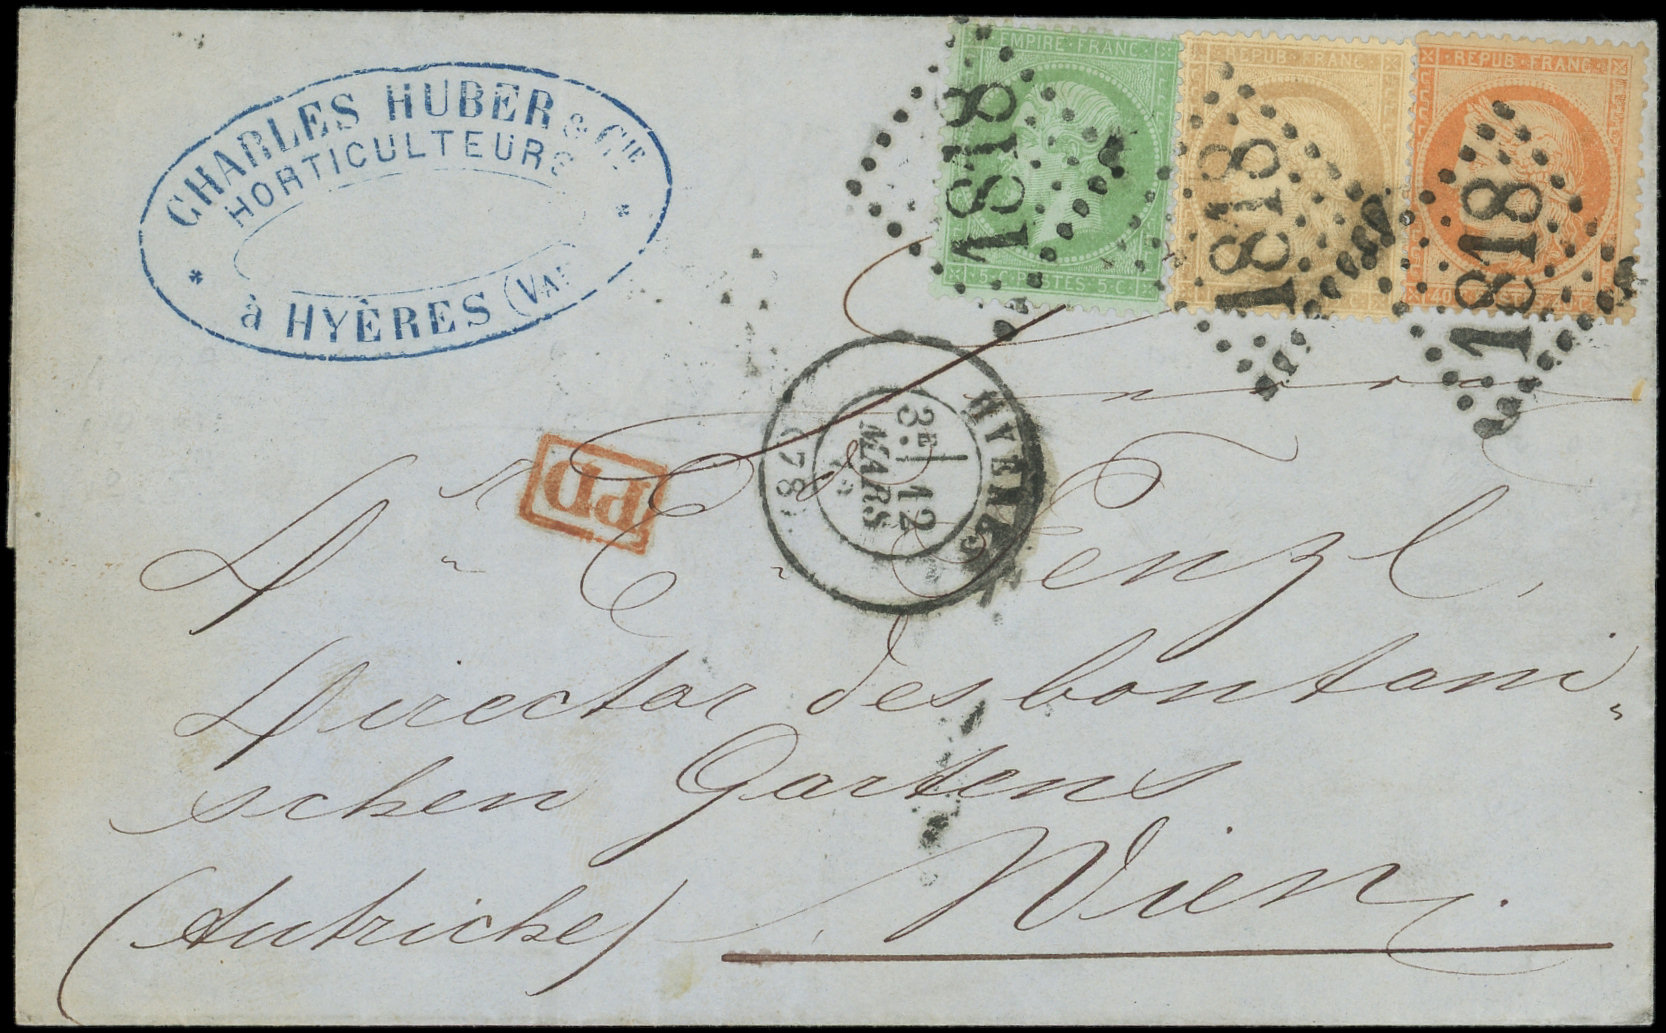 CHARLES HUBER & CIE
HORTICULTEURS
* à HYÈRES (VAR *
EMPIRE FRANC
5 C POSTES 5 C
REPUB FRANC
REPUB FRANC
40
1818
1818
1818
HYERES
3E 12
MARS
(78)
PD
Dr E. Fenzl,
Director des bontani„
schen Gartens
Wien.
(Autriche)